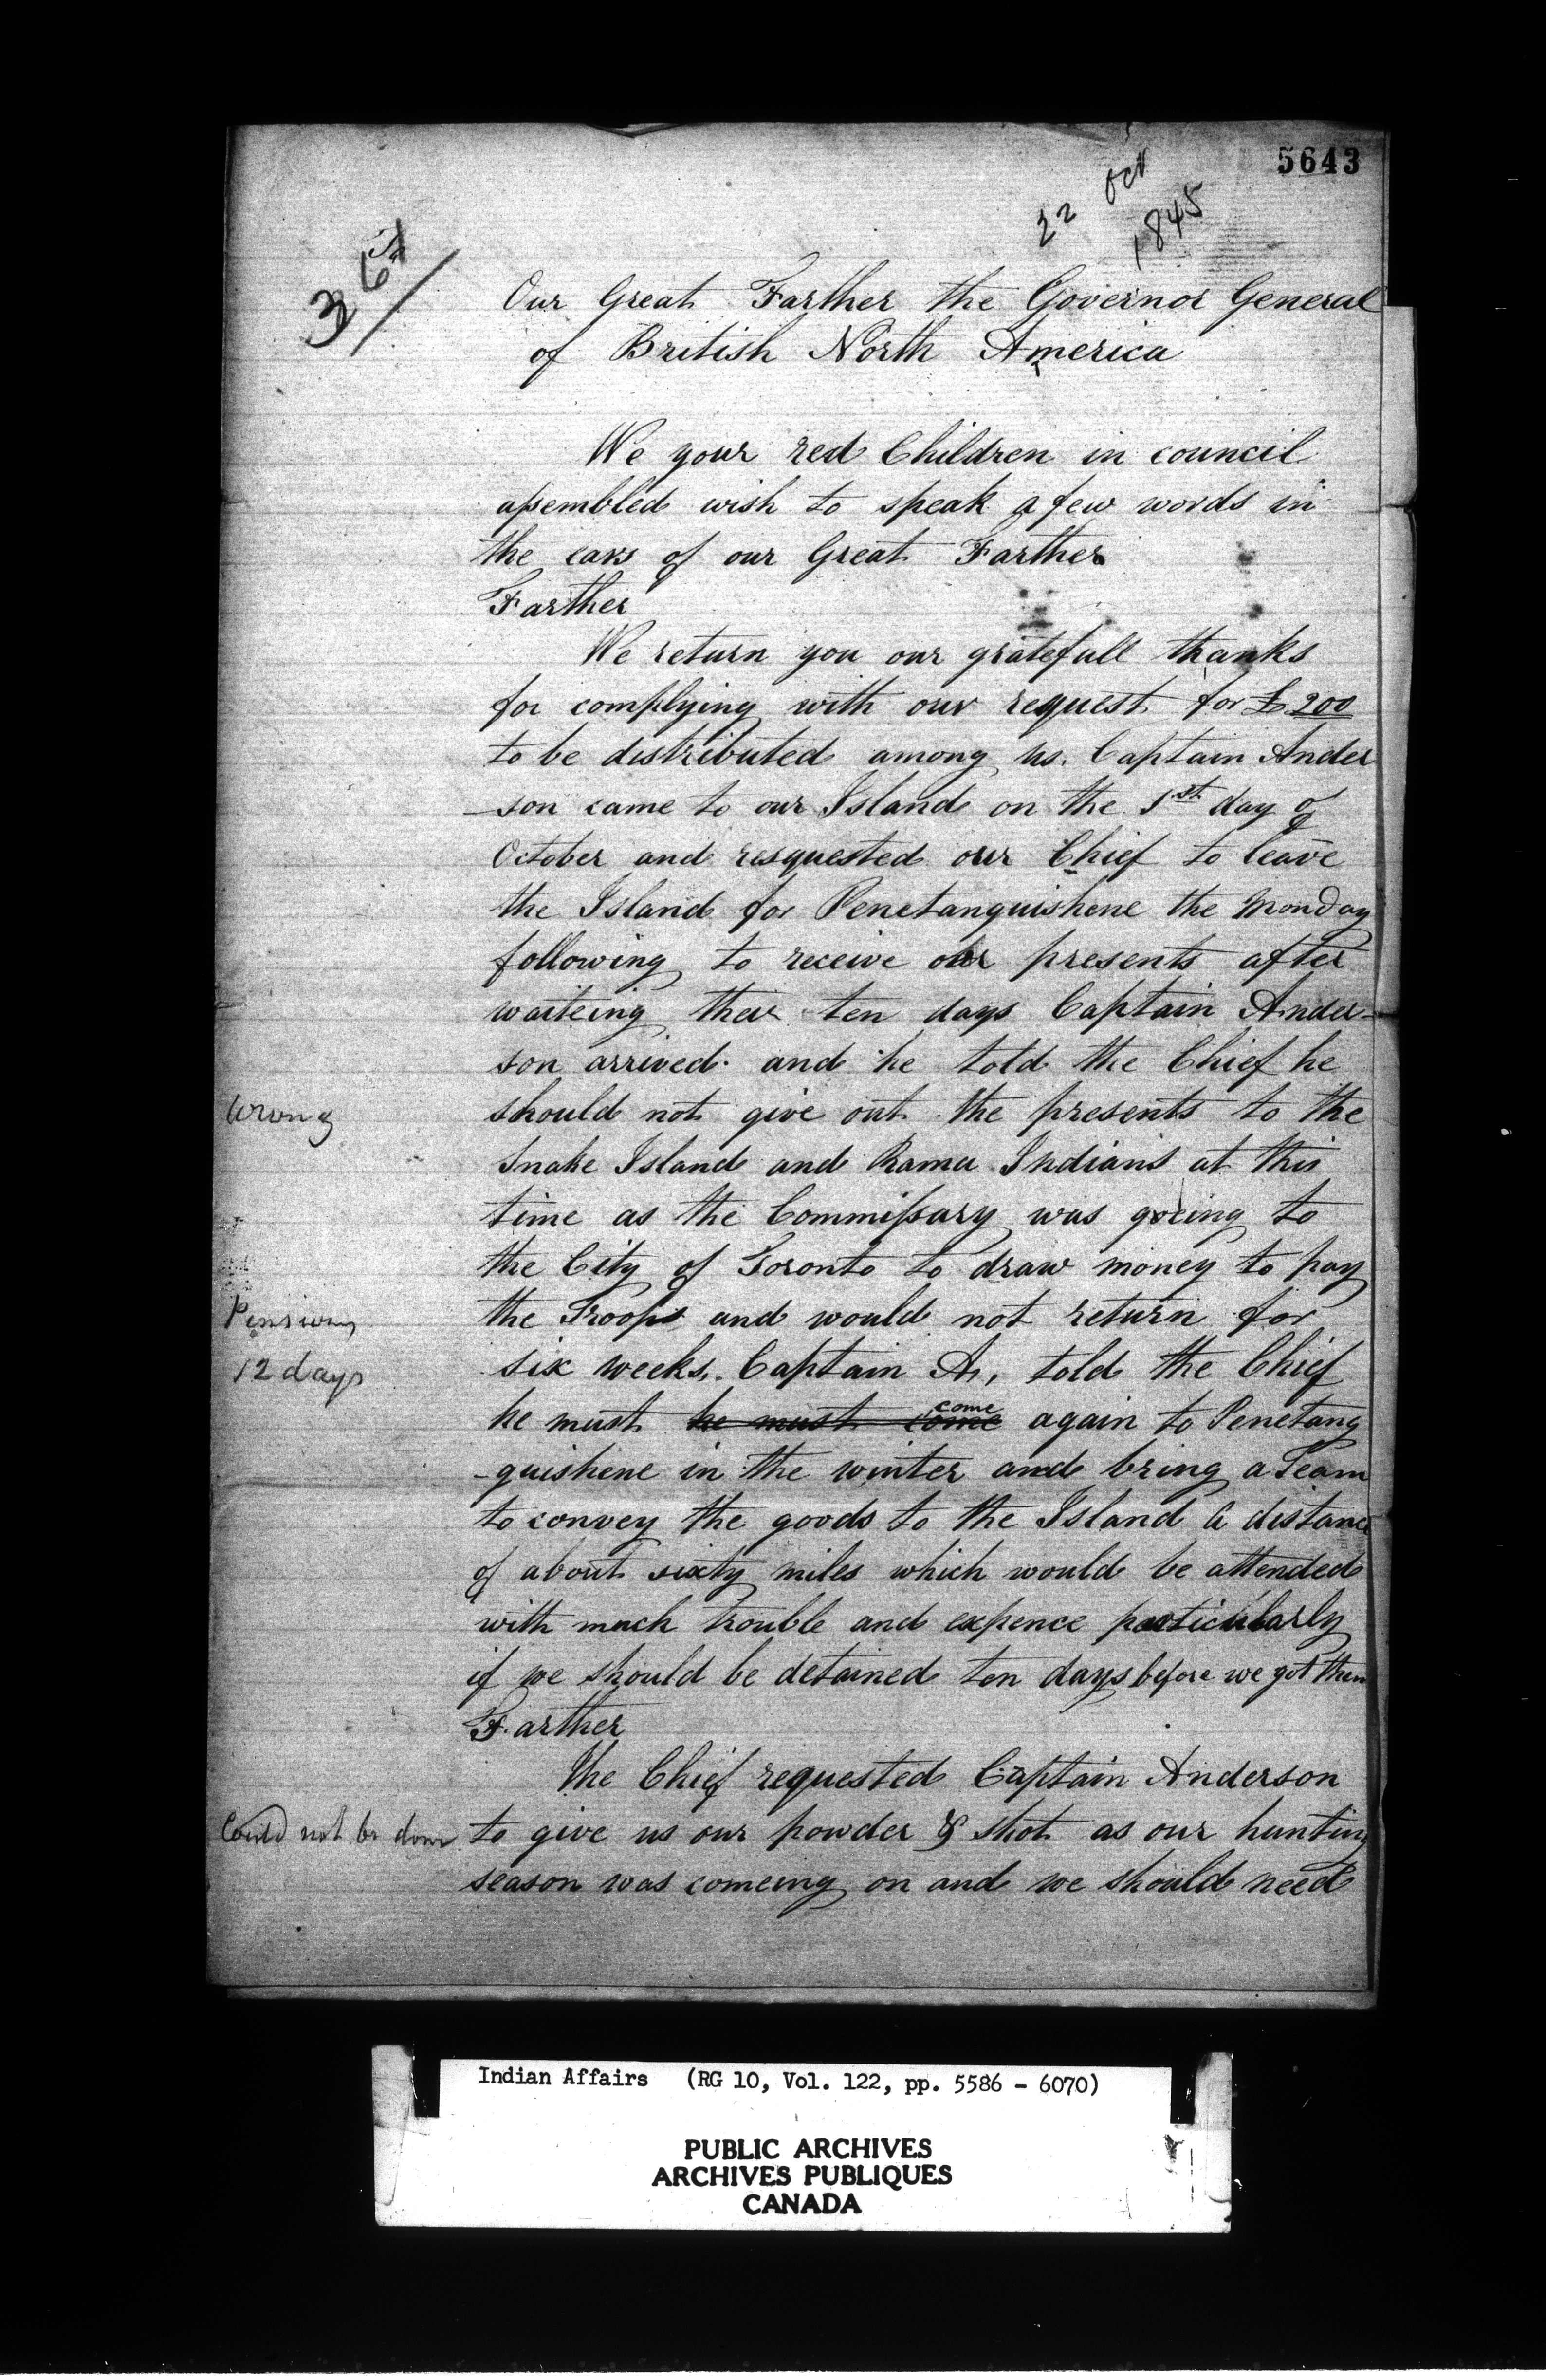 5643
22 Oct
1845
Our Great Farther the Governor General
of British North America
We your red Children in council
assembled wish to speak a few words in
the ears of our Great Farther
Farther
We return you our gratefull thanks
for complying with our request for £200
to be distributed among us. Captain Ander
-son came to our Island on the 1st day of
October and resquested our Chief to leave
the Island for Penetanguishene the Monday
following to receive our presents after
waiteing their ten days Captain Ander-
son arrived and he told the Chief he
Wrong
should not give out the presents to the
Snake Island and Rama Indians at this
time as the Commissary was goeing to
the City of Toronto to draw money to pay
Pensions
the Troops and would not return for
12 days
six weeks. Captain A, told the Chief
he must he must come come again to Penetang
-guishene in the winter and bring a Team
to convey the goods to the Island a distance
of about sixty miles which would be attended
with much trouble and expence particularly
if we should be detained ten days before we got them
Farther
The Chief requested Captain Anderson
Could not be done
to give us our powder & shot as our hunting
season was comeing on and we should need
Indian Affairs (RG 10, Vol. 122, pp. 5586 - 6070)
PUBLIC ARCHIVES
ARCHIVES PUBLIQUES
CANADA